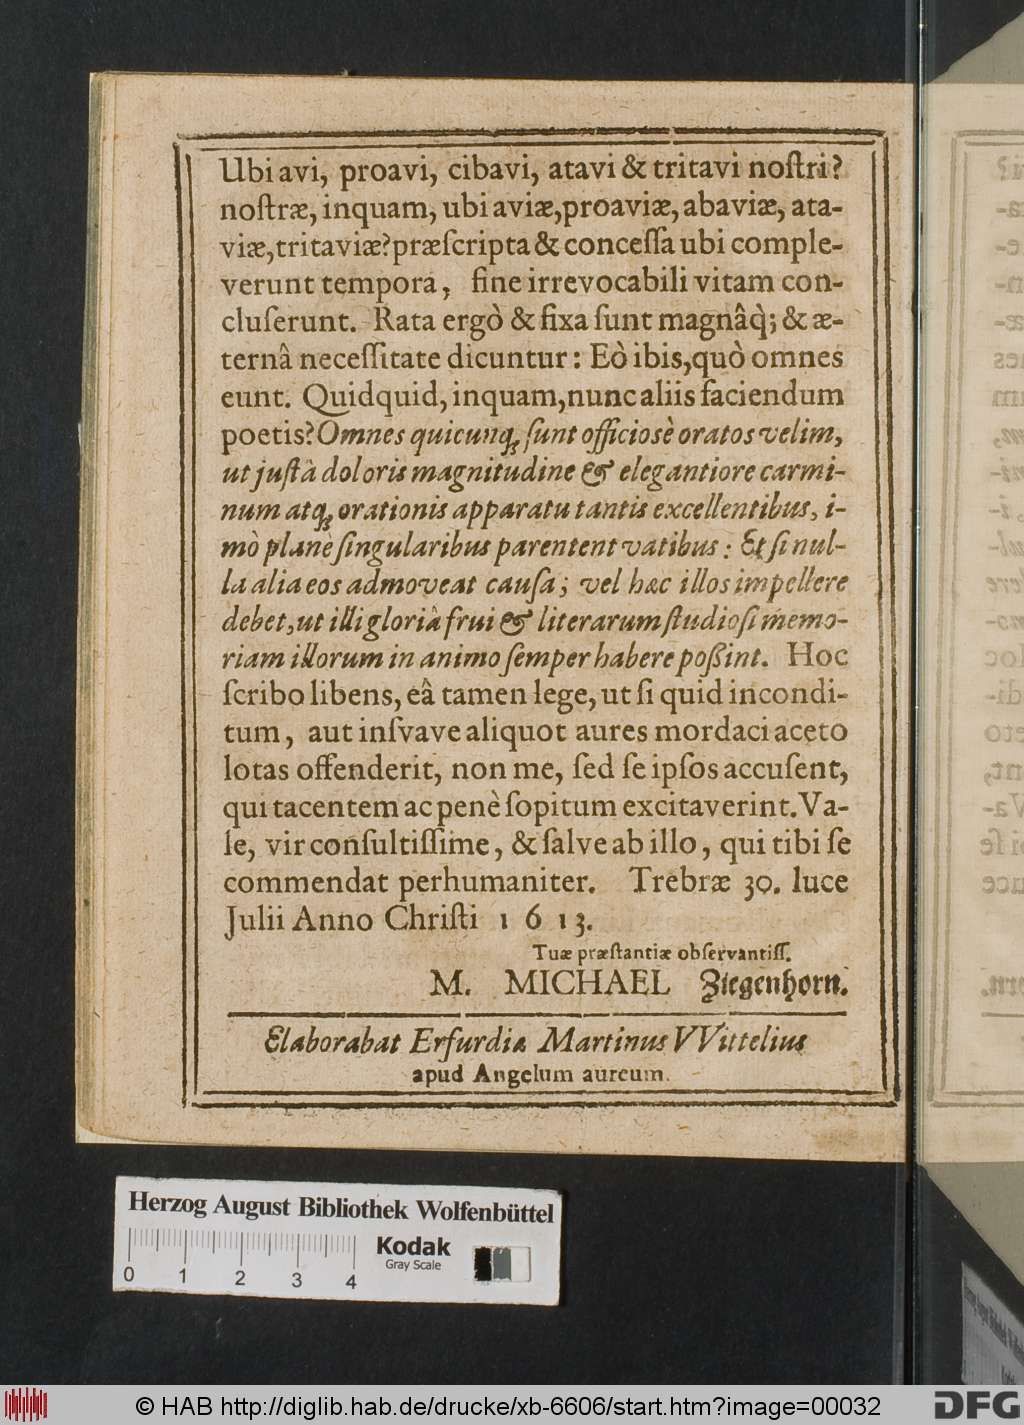 Ubi avi, proavi, cibavi, atavi & tritavi noſtri?
noſtræ, inquam, ubi aviæ, proaviæ, abaviæ, ata-
viæ, tritaviæ? præſcripta & conceſſa ubi comple-
verunt tempora, fine irrevocabili vitam con-
cluſerunt. Rata ergò & fixa ſunt magnâq́; & æ-
ternâ neceſſitate dicuntur: Eò ibis, quò omnes
eunt. Quidquid, inquam, nunc aliis faciendum
poetis? Omnes quicunq; ſunt officiosè oratos velim,
ut juſtâ doloris magnitudine & elegantiore carmi-
num atq; orationis apparatu tantis excellentibus, i-
mò planè ſingularibus parentent vatibus: Et ſi nul-
la alia eos admoveat cauſa; vel hæc illos impellere
debet, ut illi gloriâ frui & literarum ſtudioſi memo-
riam illorum in animo ſemper habere poßint. Hoc
ſcribo libens, eâ tamen lege, ut ſi quid incondi-
tum, aut inſvave aliquot aures mordaci aceto
lotas offenderit, non me, ſed ſe ipſos accuſent,
qui tacentem ac penè ſopitum excitaverint. Va-
le, vir conſultiſſime, & ſalve ab illo, qui tibi ſe
commendat perhumaniter. Trebræ 30. luce
Julii Anno Chriſti 1613.
Tuæ præſtantiæ obſervantiſſ.
M. MICHAEL Ziegenhorn.
Elaborabat Erfurdiæ Martinus VVittelius
apud Angelum aureum.
Herzog August Bibliothek Wolfenbüttel
Kodak
Gray Scale
0 1 2 3 4
© HAB http://diglib.hab.de/drucke/xb-6606/start.htm?image=00032
DFG